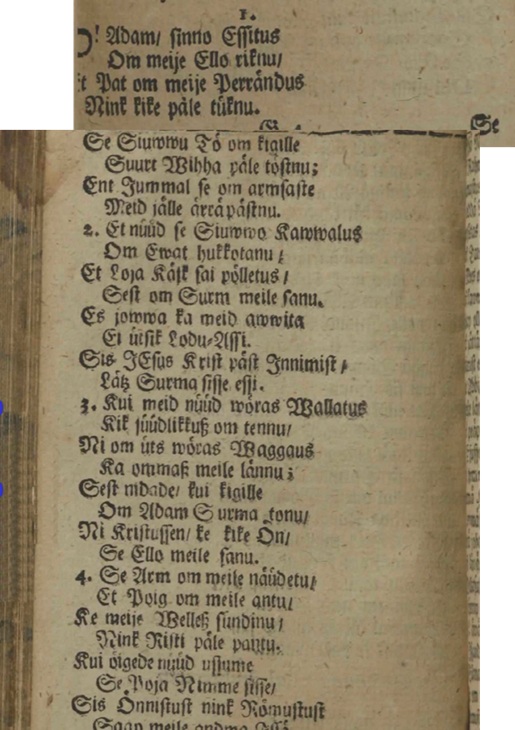 1.
O! Adam/ sinno Essitus
Om meije Ello riknu/
Pat om meije Perrändus
Nink kike päle tüknu.
Se
Se Siuwwu Tö om kigille
Suurt Wihha päle töstnu;
Ent Jummal se om armsaste
Meid jälle ärräpästnu.
2. Et nüüd se Siuwwo Kawwalus
Om Ewat hukkotanu/
Et Loja Käsk sai pölletus/
Sest om Surm meile sanu.
Es jowwa ka meid awwita
Ei ütsik Lodu-Assi.
Sis JEsus Krist päst Innimist/
Lätz Surma sisse essi.
3. Kui meid nüüd wöras Wallatus
Kik jüüdlikkuß om tennu/
Ni om üts wöras Waggaus
Ka ommaß meile lännu;
Sest mdade/ kui kigille
Om Adam Surma tonu/
Ni Kristussen/ ke kike On/
Se Ello meile sanu.
4. Se Arm om meile näüdetu/
Et Poig om meile antu/
Ke meije Welleß sündinu/
Nink Risti päle pantu.
Kui öigede nüüd ussume
Se Poja Nimme sisse/
Sis Önnistust nink Römustust
Saap meile andma